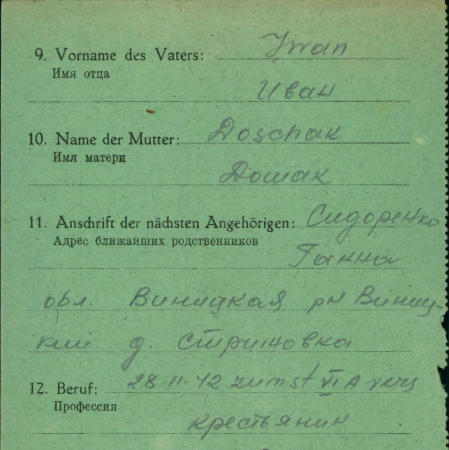 9. Vorname des Vaters: Iwan
Имя отца
Иван
10. Name der Mutter: Doschak
Имя матери
Дошак
11. Anschrift der nächsten Angehörigen: Сидоренко
Адрес ближайших родственников
Ганна
обл. Виницкая рн Виниц
кий д. Стриновка
12. Beruf: 28.11.42 zum St VI A
Профессия
крестьянин